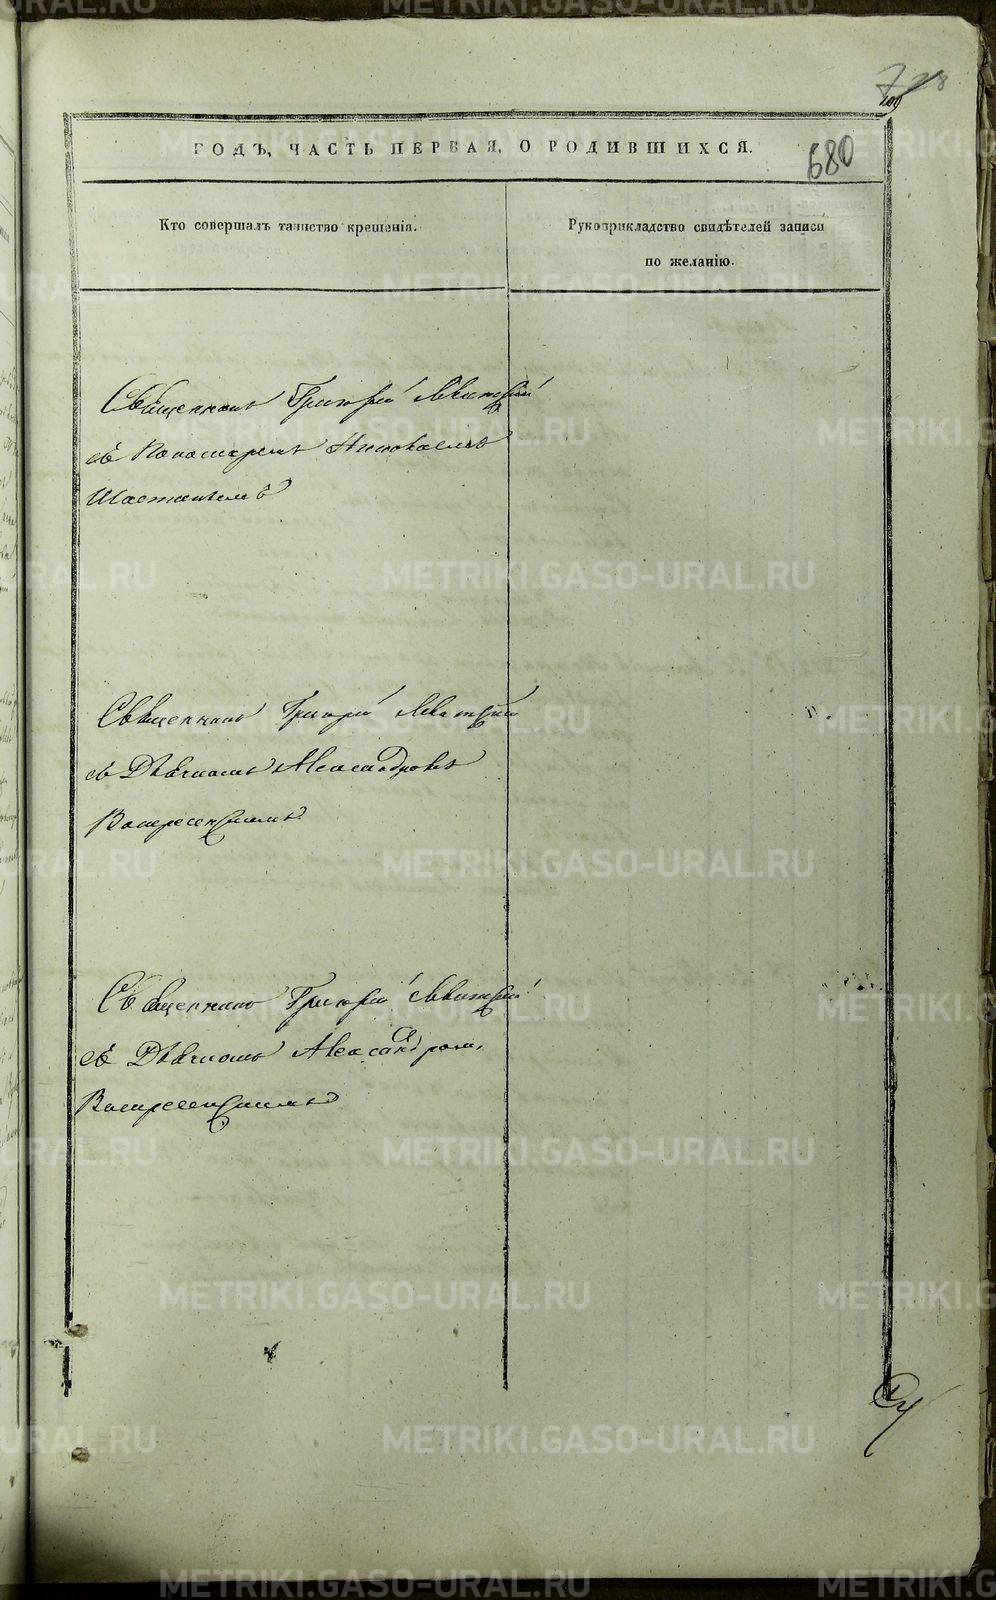 728
680
ГОДЪ, ЧАСТЬ ПЕРВАЯ, О РОДИВШИХСЯ.
Кто совершалъ таинство крещенія.
Рукоприкладство свидѣтелей записи
по желанію.
Священникъ Григорій Левитскій
съ Пономаремъ Николаемъ
Священникъ Григорій Левитскій
съ Дьячкомъ Александромъ
Воскресенскимъ
Священникъ Григорій Левитскій
съ Дьячкомъ Александромъ
Воскресенскимъ
METRIKI.GASO-URAL.RU